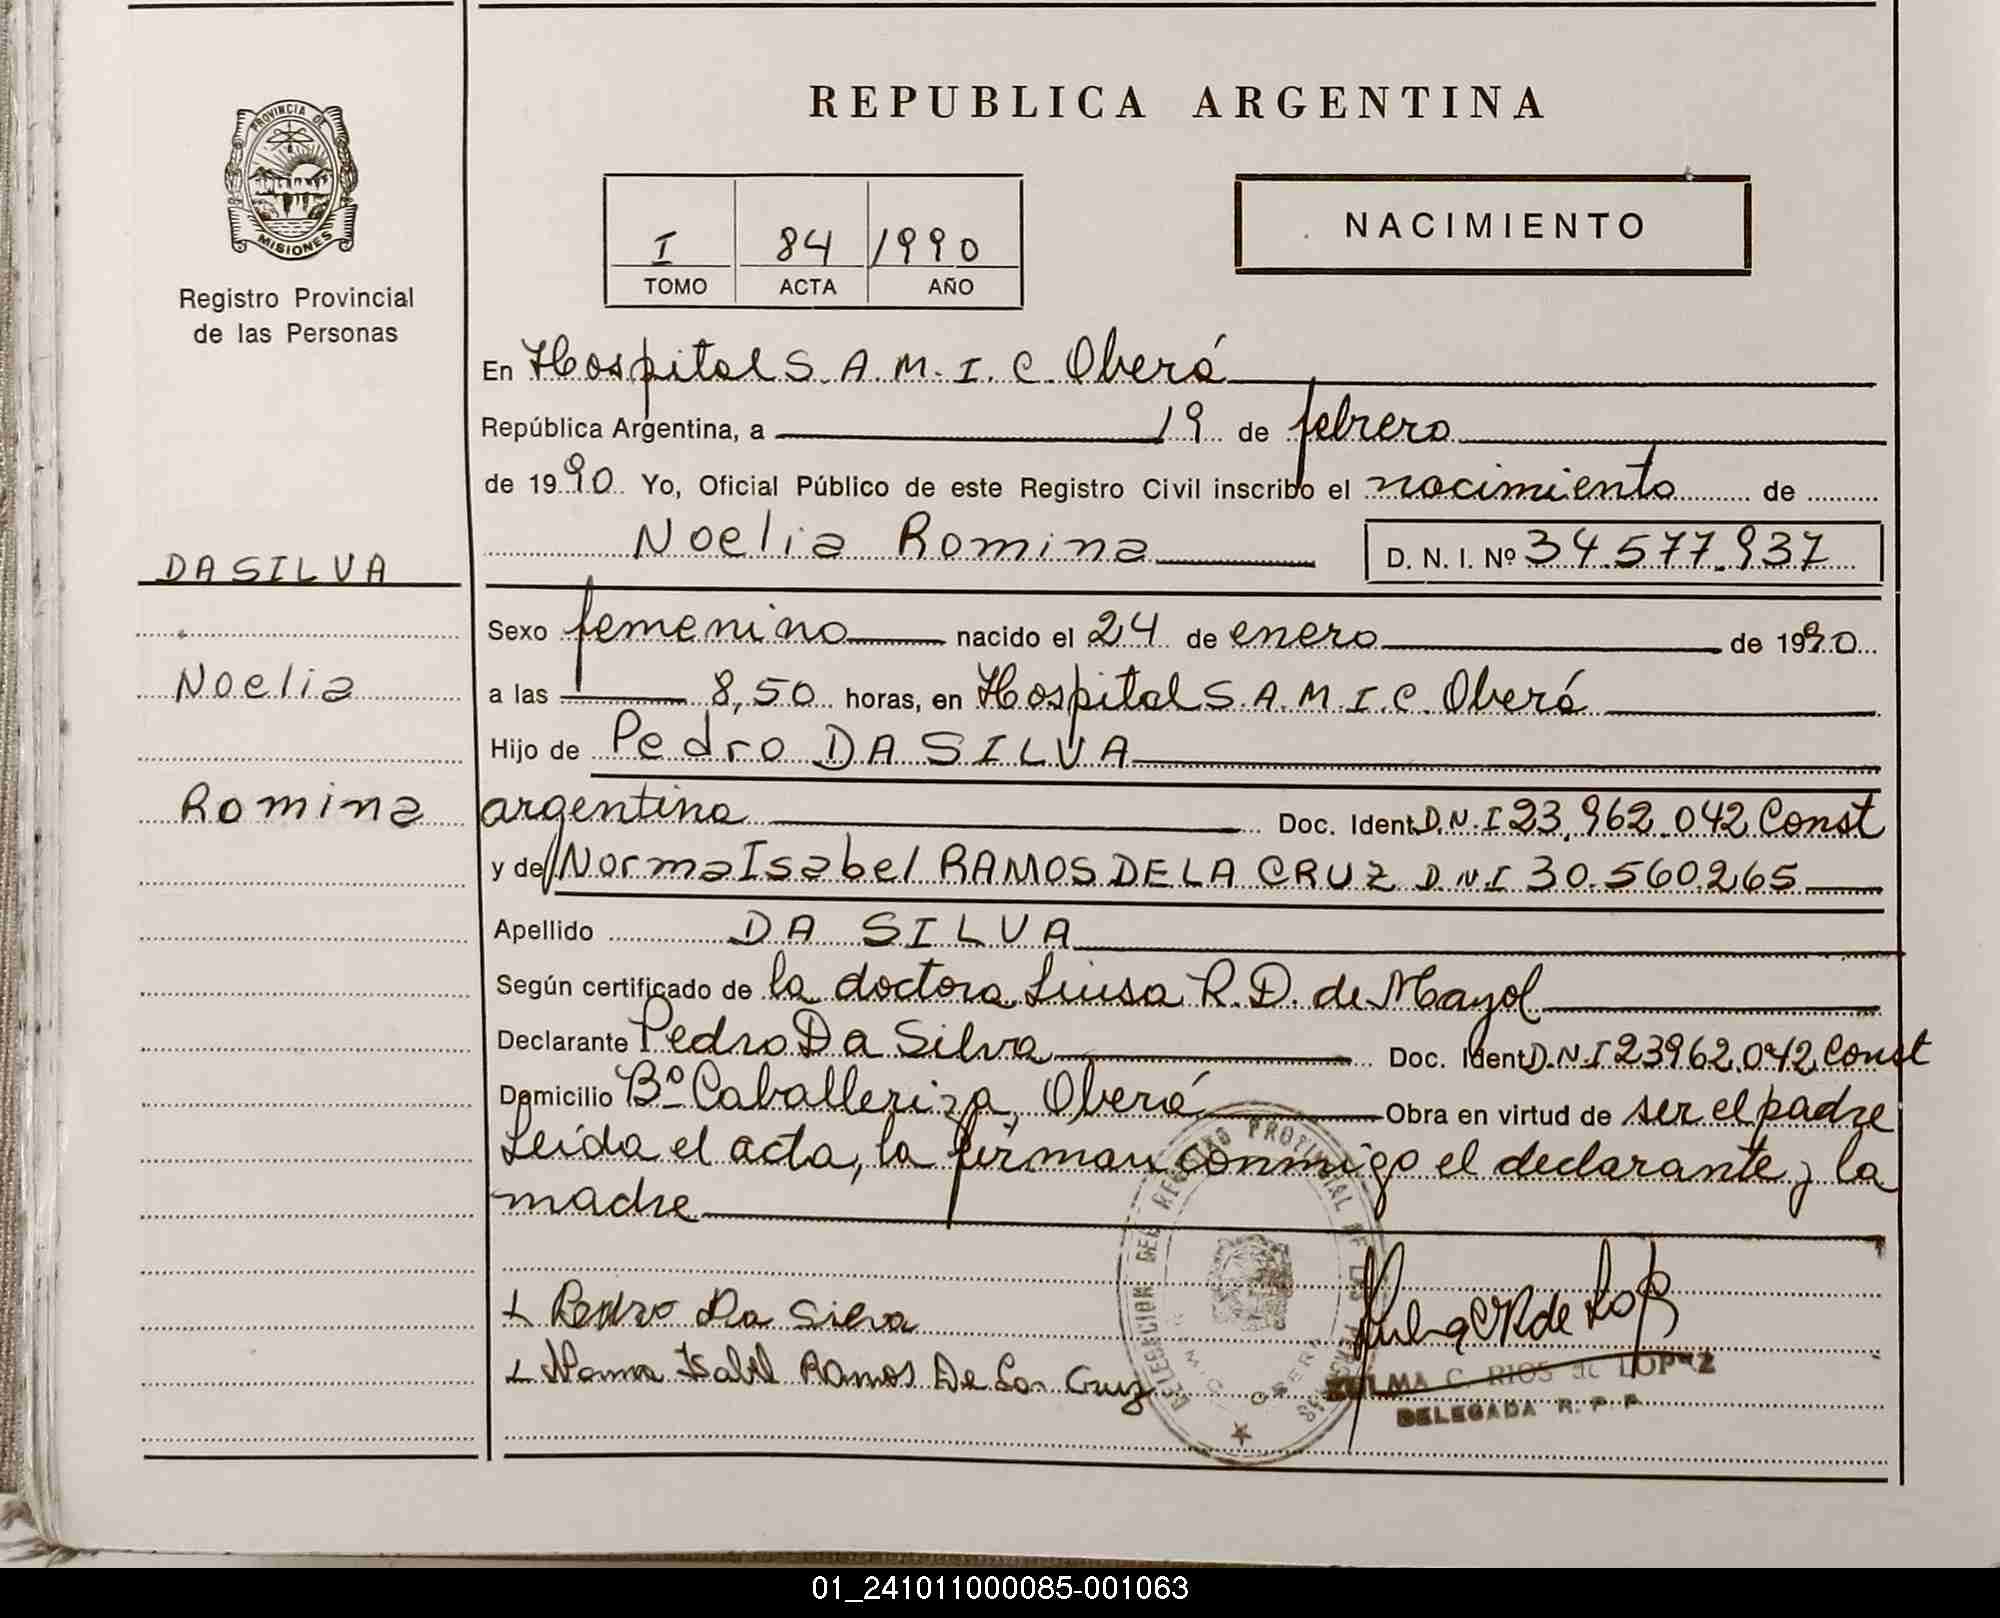 PROVINCIA DE
MISIONES
Registro Provincial
de las Personas
DA SILVA
Noelia
Romina
REPUBLICA ARGENTINA
I 84 1990
TOMO ACTA AÑO
NACIMIENTO
En Hospital S.A.M.I.C. Oberá
República Argentina, a 19 de febrero
de 1990 Yo, Oficial Público de este Registro Civil inscribo el nacimiento de
Noelia Romina D. N. I. Nº 34.577.937
Sexo femenino nacido el 24 de enero de 1990
a las 8,50 horas, en Hospital S.A.M.I.C. Oberá
Hijo de Pedro DA SILVA
argentino Doc. Ident D.N.I 23.962.042 Const
y de Norma Isabel RAMOS DE LA CRUZ D.N.I 30.560.265
Apellido DA SILVA
Según certificado de la doctora Luisa R.D. de Mayol
Declarante Pedro Da Silva Doc. Ident D.N.I 23962.042 Const
Domicilio Bº Caballeriza, Oberá Obra en virtud de ser el padre
Leída el acta, la firman conmigo el declarante y la
madre
Pedro Da Silva
Norma Isabel Ramos De La Cruz
DELEGACION DEL REGISTRO PROVINCIAL DE LAS PERSONAS
OBERA
ZULMA C. RIOS de LOPEZ
DELEGADA R. P. P.
01_241011000085-001063